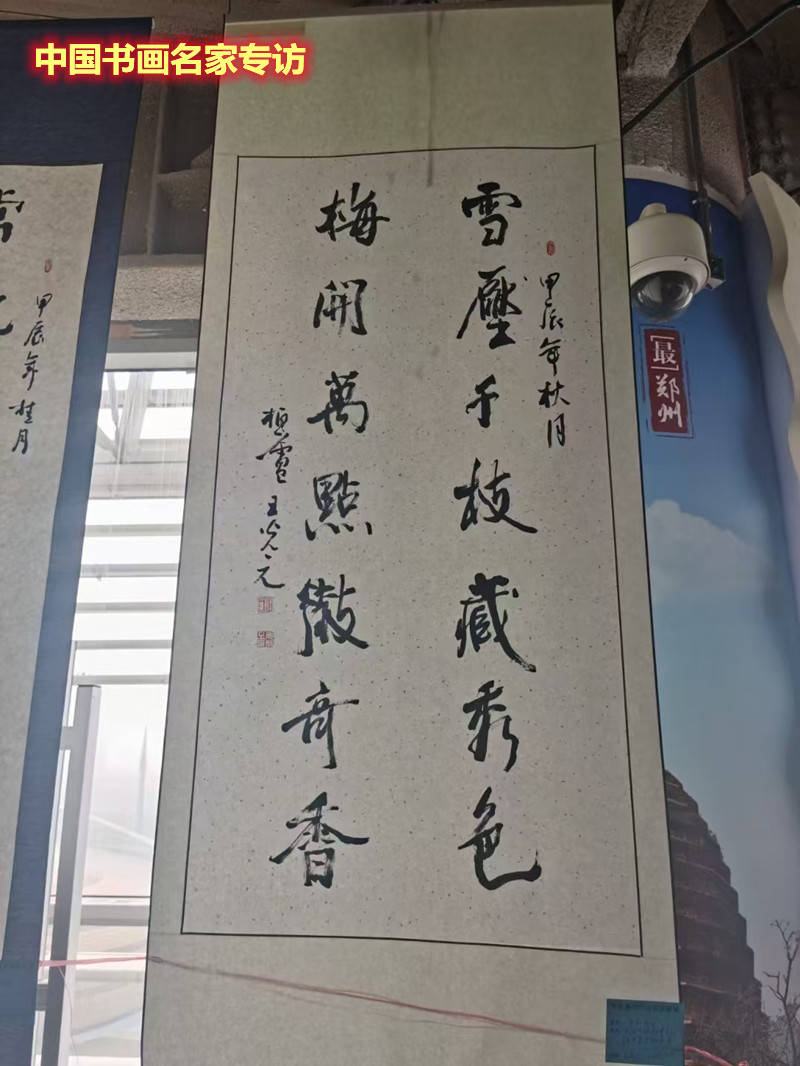 中国书画名家专访
甲辰年秋月
雪壓千枝藏秀色
梅開萬點散奇香
王光元
最
郑州
甲辰年桂月